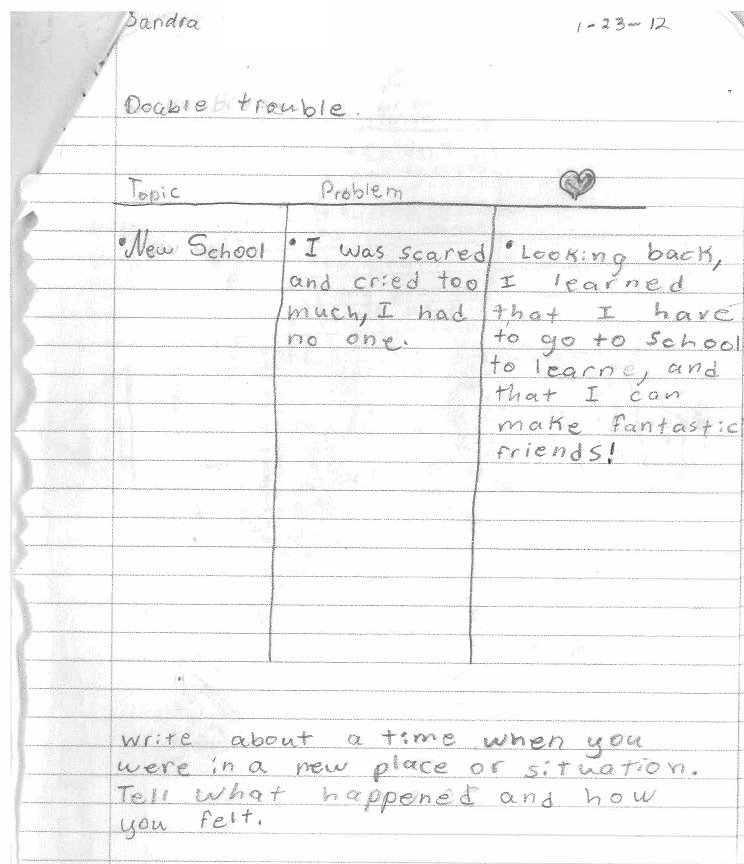 Sandra
1-23-12
Doable trouble.
Topic
Problem
• New School
• I was scared
and cried too
much, I had
no one.
• Looking back,
I learned
that I have
to go to school
to learne, and
that I can
make fantastic
friends!
write about a time when you
were in a new place or situation.
Tell what happened and how
you felt.